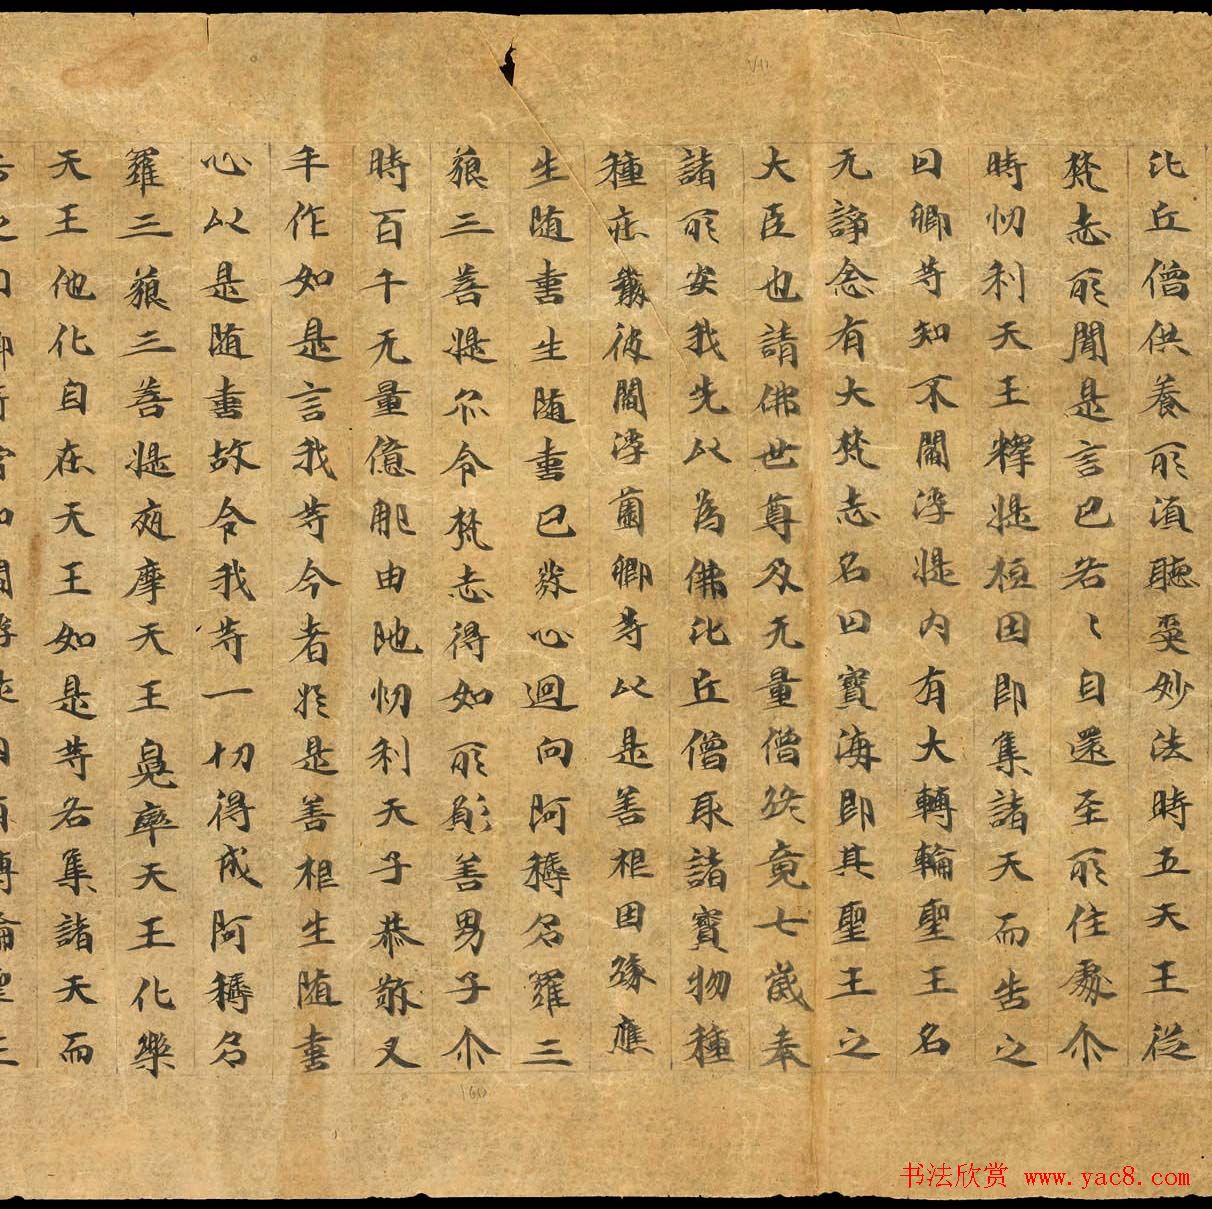 比丘僧供養所湏聽受妙法時五天王從
梵志所聞是言已各〻自還至所住處尒
時忉利天王釋提桓因即集諸天而告之
曰卿等知不閻浮提内有大轉輪聖王名
无諍念有大梵志名曰寶海即其聖王之
大臣也請佛世尊及无量僧終竟七歲奉
諸所安我先以為佛比丘僧取諸寶物種
種莊嚴彼閻浮薗卿等以是善根因緣應
生随喜生随喜已發心迴向阿耨多羅三
藐三菩提尒令梵志得如所願善男子尒
時百千无量億那由他忉利天子恭敬叉
手作如是言我等今者於是善根生随喜
心以是随喜故令我等一切得成阿耨多
羅三藐三菩提夜摩天王兜率天王化樂
天王他化自在天王如是等各集諸天而
160
书法欣赏 www.yac8.com